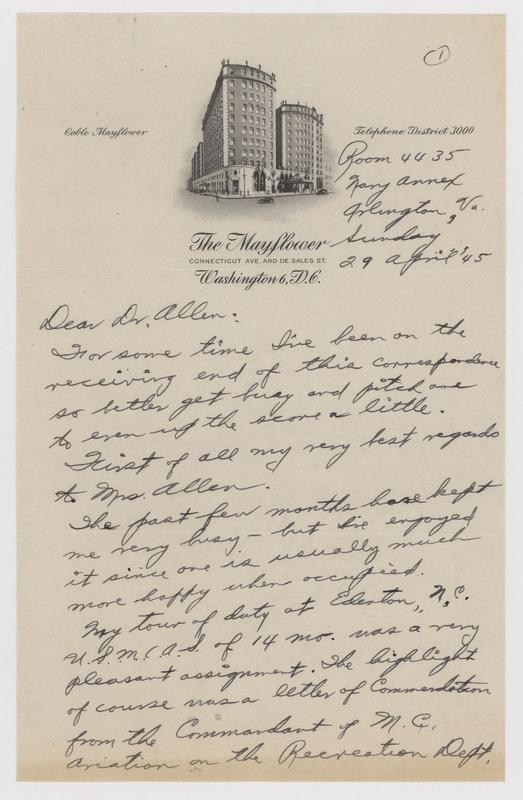 1
Cable Mayflower
Telephone District 3000
Room 4435
Navy Annex
Arlington, Va.
Sunday
29 April '45
The Mayflower
CONNECTICUT AVE. AND DE SALES ST.
Washington 6, D.C.
Dear Dr. Allen:
For some time I've been on the
receiving end of this correspondence
so better get busy and pitch one
to even up the score a little.
First of all my very best regards
to Mrs. Allen.
The past few months have kept
me very busy - but I've enjoyed
it since one is usually much
more happy when occupied.
My tour of duty at Edenton, N.C.
U.S.M.C.A.S. of 14 mo. was a very
pleasant assignment. The highlight
of course was a letter of Commendation
from the Commandant of M.C.
Aviation on the Recreation Dept.